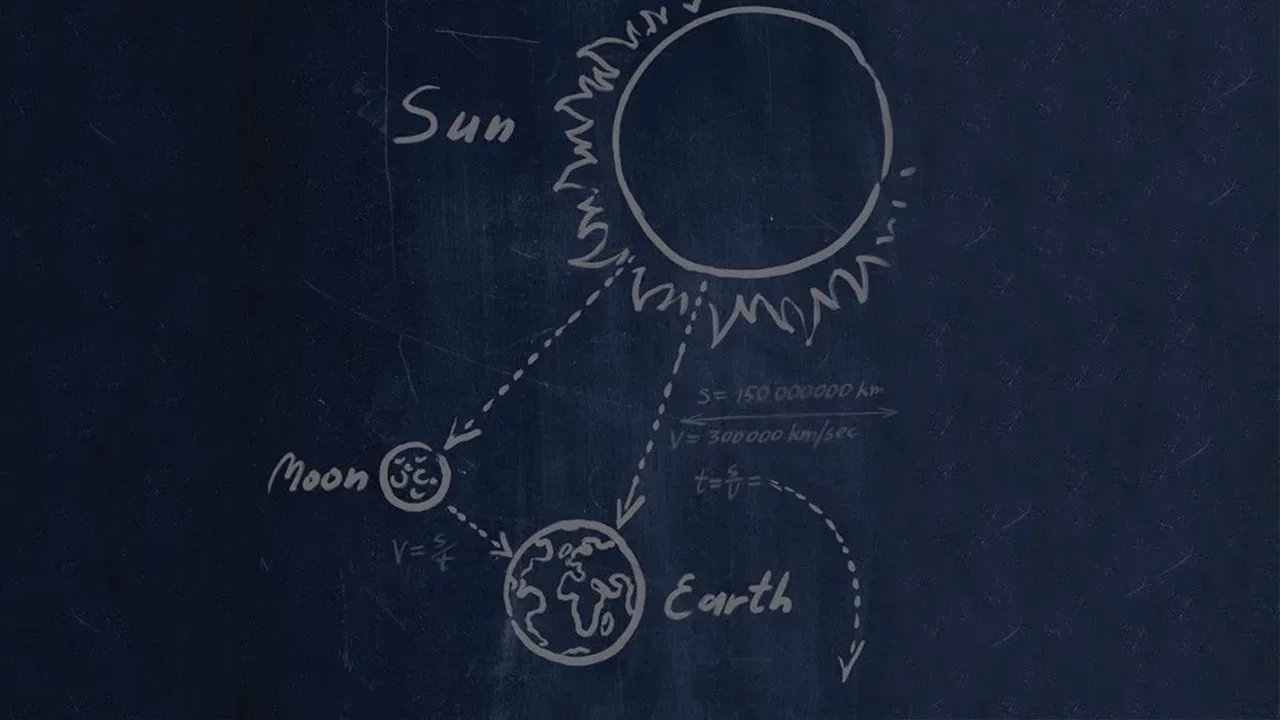 Sun
S= 150 000000 km
V= 300000 km/sec
Moon
t= s/v =
V= s/t
Earth